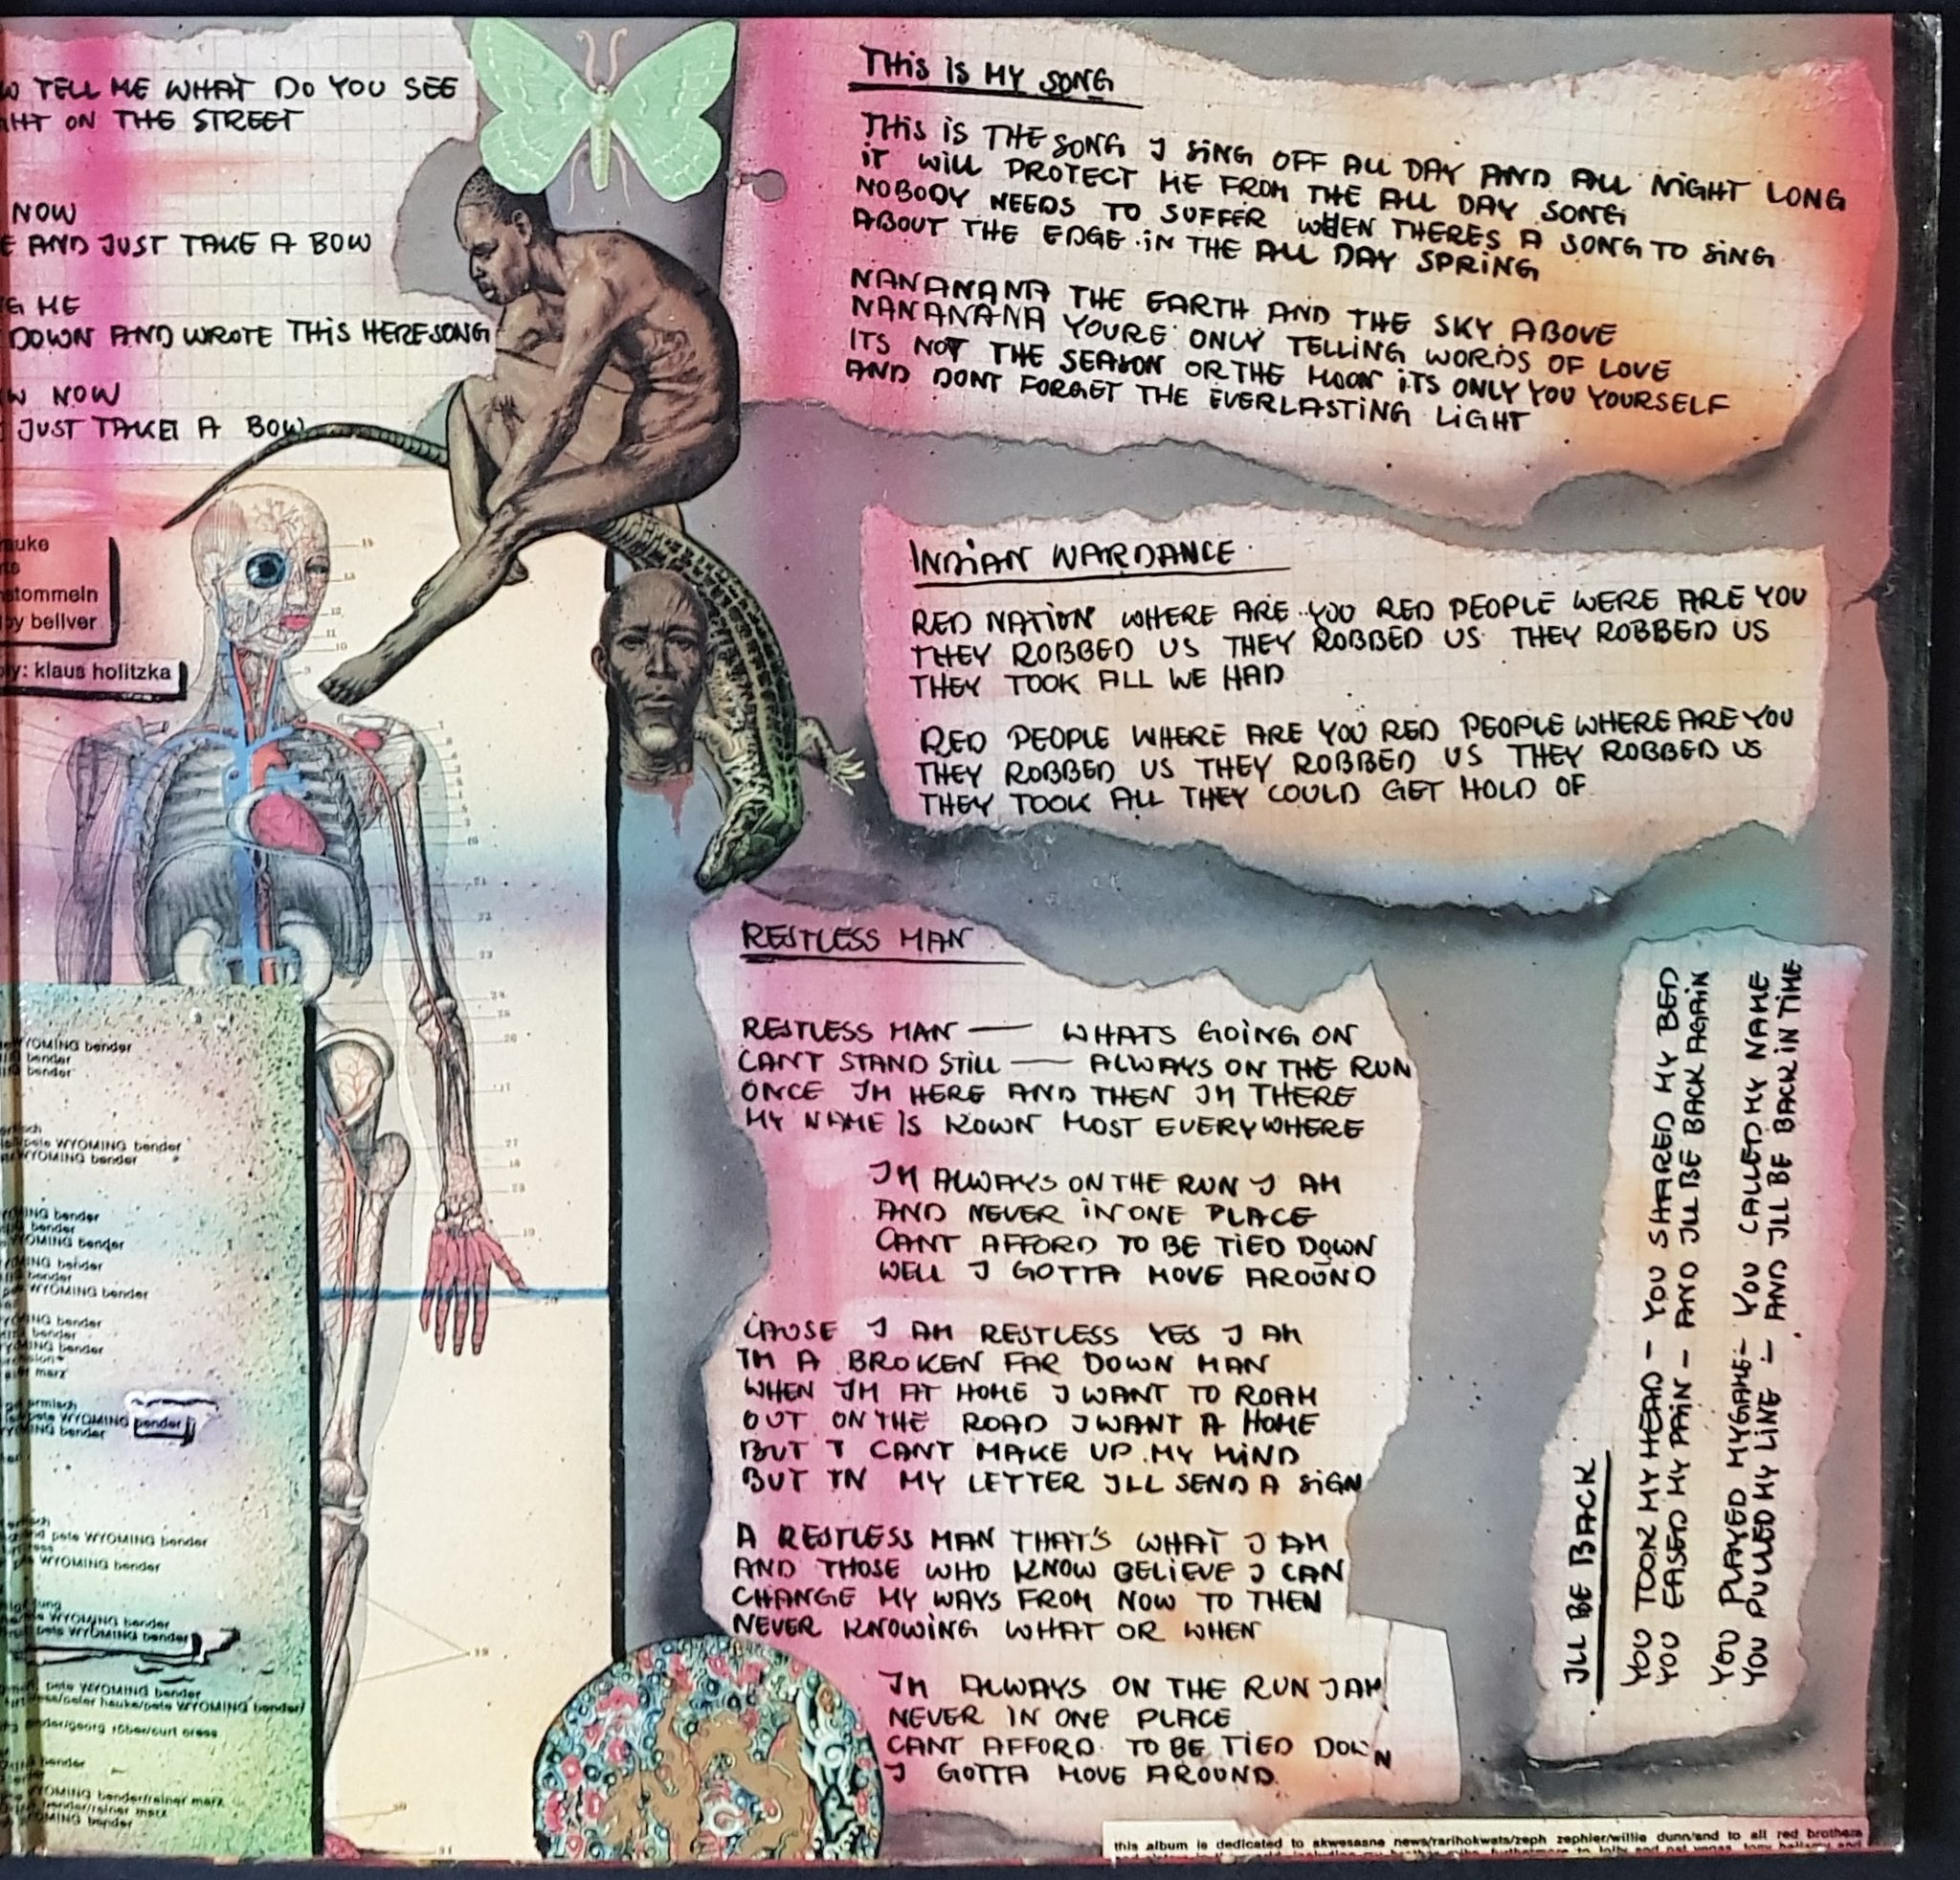 TELL ME WHAT DO YOU SEE
ON THE STREET
NOW
AND JUST TAKE A BOW
ME
DOWN AND WROTE THIS HERE SONG
NOW
JUST TAKE A BOW
stommeln
by bellver
klaus holitzka
THIS IS MY SONG
THIS IS THE SONG I SING OFF ALL DAY AND ALL NIGHT LONG
IT WILL PROTECT ME FROM THE ALL DAY SONG
NOBODY NEEDS TO SUFFER WHEN THERES A SONG TO SING
ABOUT THE EDGE IN THE ALL DAY SPRING
NANANANA THE EARTH AND THE SKY ABOVE
NANANANA YOURE ONLY TELLING WORDS OF LOVE
ITS NOT THE SEASON OR THE MOON ITS ONLY YOU YOURSELF
AND DONT FORGET THE EVERLASTING LIGHT
INDIAN WARDANCE
RED NATION WHERE ARE YOU RED PEOPLE WERE ARE YOU
THEY ROBBED US THEY ROBBED US THEY ROBBED US
THEY TOOK ALL WE HAD
RED PEOPLE WHERE ARE YOU RED PEOPLE WHERE ARE YOU
THEY ROBBED US THEY ROBBED US THEY ROBBED US
THEY TOOK ALL THEY COULD GET HOLD OF
RESTLESS MAN
RESTLESS MAN — WHATS GOING ON
CANT STAND STILL — ALWAYS ON THE RUN
ONCE IM HERE AND THEN IM THERE
MY NAME IS KOWN MOST EVERYWHERE
IM ALWAYS ON THE RUN I AM
AND NEVER IN ONE PLACE
CANT AFFORD TO BE TIED DOWN
WELL I GOTTA MOVE AROUND
CAUSE I AM RESTLESS YES I AM
IM A BROKEN FAR DOWN MAN
WHEN IM AT HOME I WANT TO ROAM
OUT ON THE ROAD I WANT A HOME
BUT I CANT MAKE UP MY MIND
BUT IN MY LETTER ILL SEND A SIGN
A RESTLESS MAN THAT'S WHAT I AM
AND THOSE WHO KNOW BELIEVE I CAN
CHANGE MY WAYS FROM NOW TO THEN
NEVER KNOWING WHAT OR WHEN
IM ALWAYS ON THE RUN I AM
NEVER IN ONE PLACE
CANT AFFORD TO BE TIED DOWN
I GOTTA MOVE AROUND
ILL BE BACK
YOU TOOK MY HEAD – YOU SHARED MY BED
YOU EASED MY PAIN – AND ILL BE BACK AGAIN
YOU PLAYED MY GAME – YOU CALLED MY NAME
YOU PULLED MY LINE – AND ILL BE BACK IN TIME
WYOMING bender
bender
bender
pete WYOMING bender
WYOMING bender
bender
bender
WYOMING bender
bender
bender
WYOMING bender
bender
bender
bender
marz
pete WYOMING bender
bender
pete WYOMING bender
pete WYOMING bender
WYOMING bender
pete WYOMING bender
pete WYOMING bender
hauke/pete WYOMING bender/
curt cress
bender
WYOMING bender/rainer marz
bender/rainer marz
bender
this album is dedicated to akwesasne news/rarihokwats/zeph zephier/willie dunn/and to all red brothers